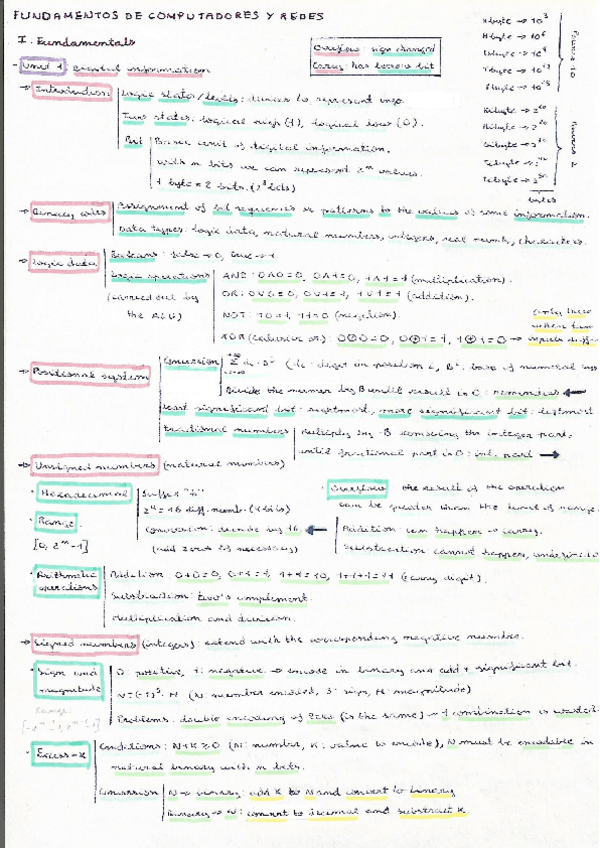 FUNDAMENTOS DE COMPUTADORES Y REDES
I. Fundamentals
Overflow: sign changed
Carry: has borrow bit
Kbyte → 10³
Mbyte → 10⁶
Gbyte → 10⁹
Tbyte → 10¹²
Pbyte → 10¹⁵
Powers 10
Kibyte → 2¹⁰
Mibyte → 2²⁰
Gibyte → 2³⁰
Tebyte → 2⁴⁰
Pebyte → 2⁵⁰
Powers 2
bytes
- Unit 1 Digital information
→ Introduction
Logic states/levels: devices to represent info.
Two states: logical high (1), logical low (0).
Bit
Basic unit of digital information.
With n bits we can represent 2ⁿ values.
1 byte = 8 bits (2³ bits)
→ Binary codes
Assignment of bit sequences or patterns to the values of some information.
Data types: logic data, natural numbers, integers, real numb, characters.
→ Logic data
Boolean: false → 0, true → 1.
Logic operations
(carried out by
the ALU)
AND: 0∧0=0, 0∧1=0, 1∧1=1 (multiplication).
OR: 0∨0=0, 0∨1=1, 1∨1=1 (addition).
NOT: ¬0=1, ¬1=0 (negation).
XOR (exclusive or): 0⊕0=0, 0⊕1=1, 1⊕1=0 →
only true
when two
inputs differ
→ Positional system
Conversion
(di: digit in position i, Bⁱ: base of numeral sys
Divide the number by B until result is 0: remainders ←
Least significant bit: rightmost, more significant bit: leftmost
Fractional numbers
Multiply by B removing the integer part,
until fractional part is 0: int. part →
→ Unsigned numbers (natural numbers)
· Hexadecimal
Suffix "h"
2⁴ = 16 diff. numb. (4 bits)
Conversion: divide by 16 ←
(add zeros if necessary)
· Range
[0, 2ⁿ-1]
· Overflow
the result of the operation
can be greater than the limit of range.
Addition: can happen → carry.
Substraction cannot happen,
· Arithmetic
operations
Addition: 0+0=0, 0+1=1, 1+1=10, 1+1+1=11 (carry digit).
Substraction: Two's complement.
Multiplication and division.
→ Signed numbers (integers) extend with the corresponding negative number.
· Sign and
magnitude
Range:
0: positive, 1: negative → encode in binary and add + significant bit.
N=(-1)ˢ · M (N: number encoded, S: sign, M: magnitude)
Problems: double encoding of zero (is the same) → 1 combination is wasted.
· Excess-K
Conditions: N+K≥0 (N: number, K: value to encode), N must be encodable in
natural binary with n bits.
Conversion
N → binary: add K to N and convert to binary
Binary → N: convert to decimal and substract K.